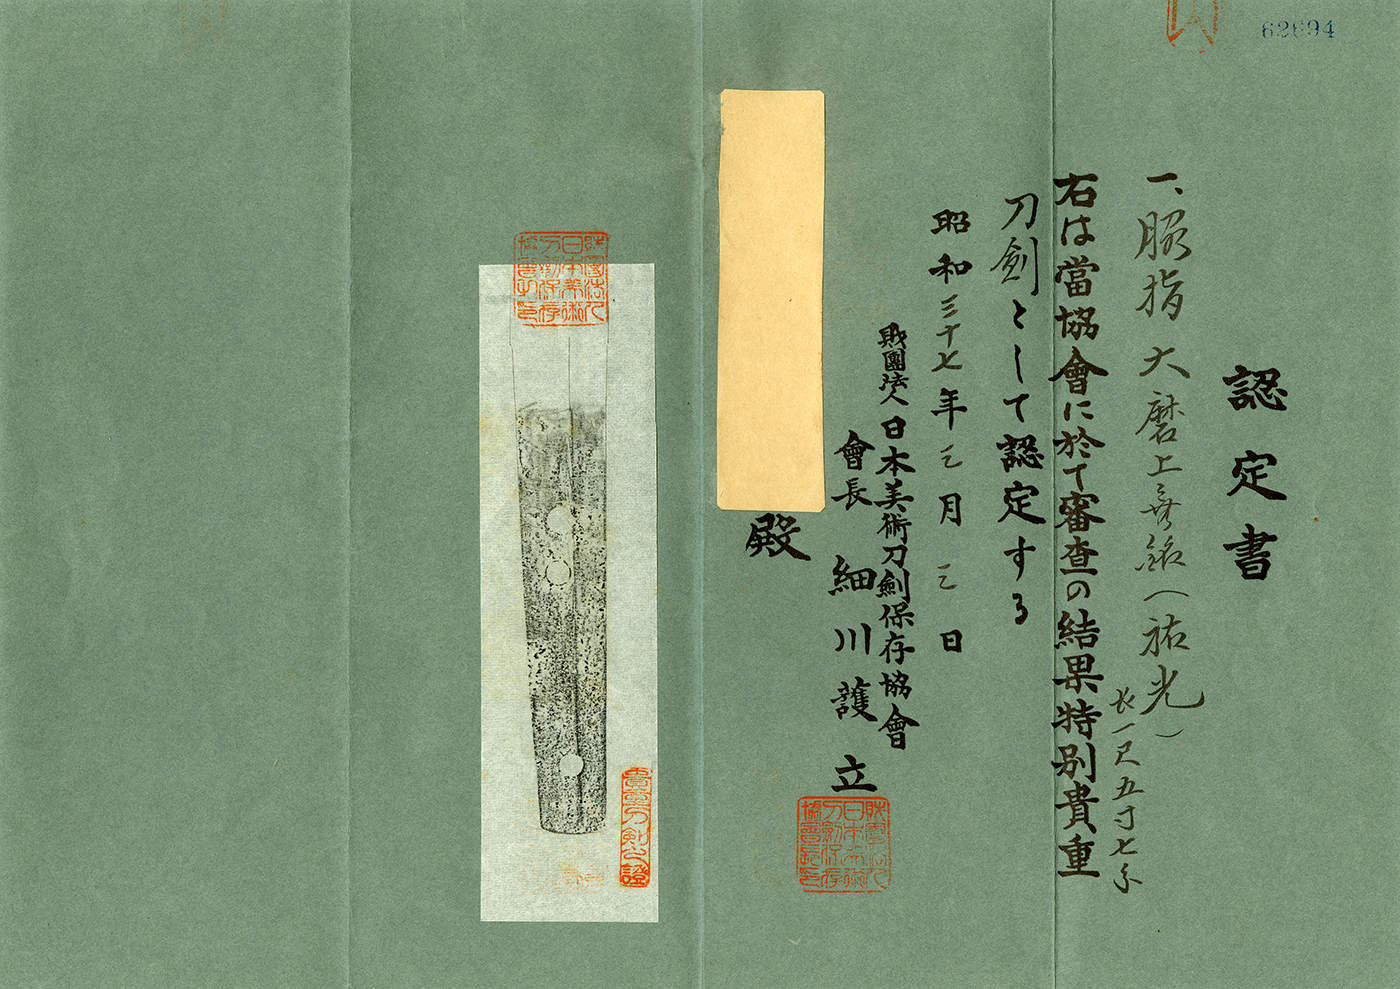 62694
認定書
一、脇指 大磨上無銘（祐光）
長一尺五寸七分
右は當協會に於て審査の結果特別貴重
刀劍として認定する
昭和三十七年三月三日
財團法人日本美術刀劍保存協會
會長 細川護立
殿
財團法人日本美術刀劍保存協會
貴重刀劍之證